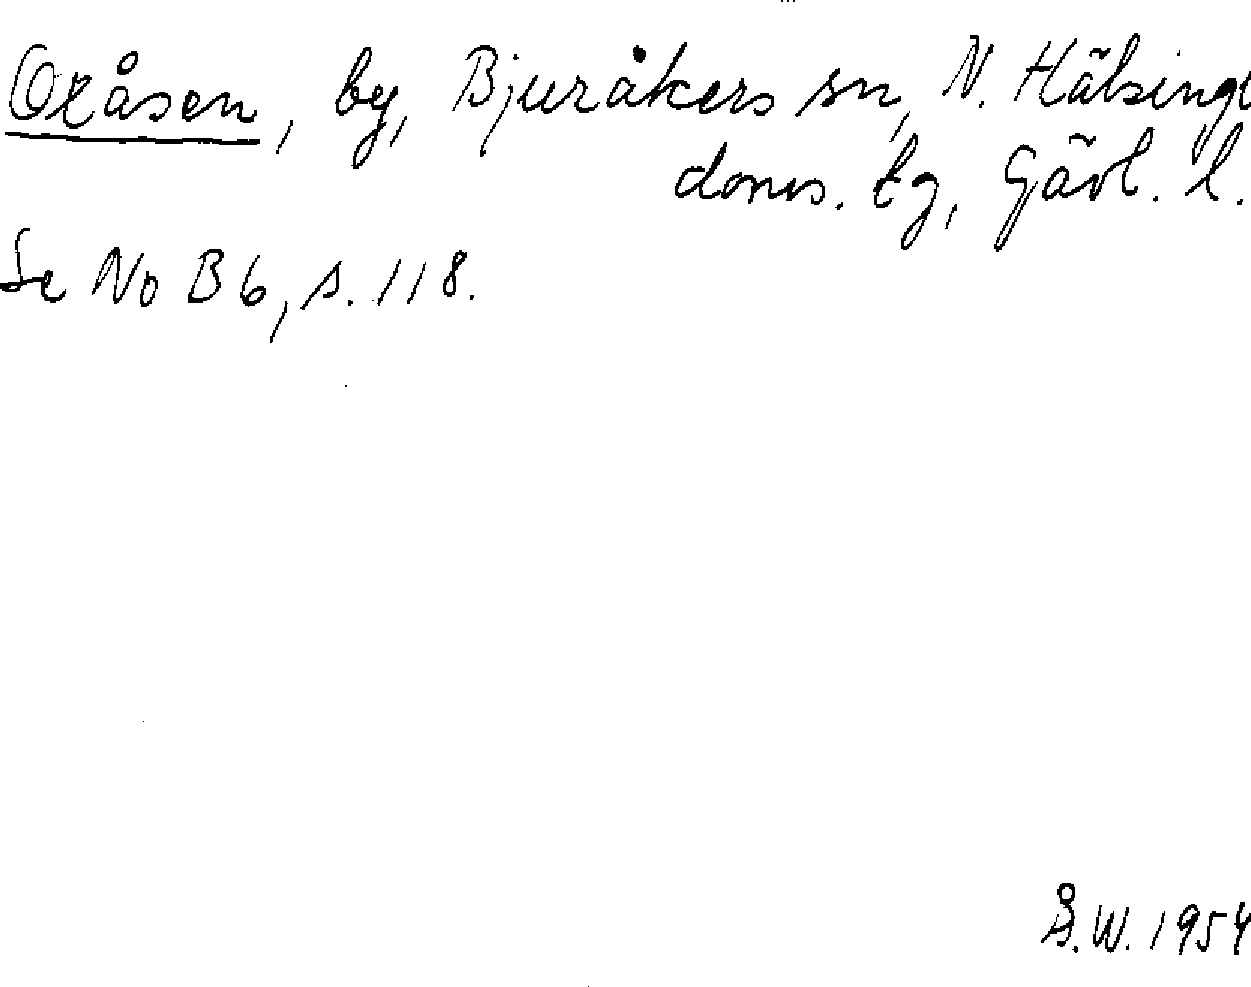 Oxåsen, by, Bjuråkers sn, N. Hälsingl
doms. tg, Gävl. l.
Se No B 6, s. 118.
Å.W. 1954